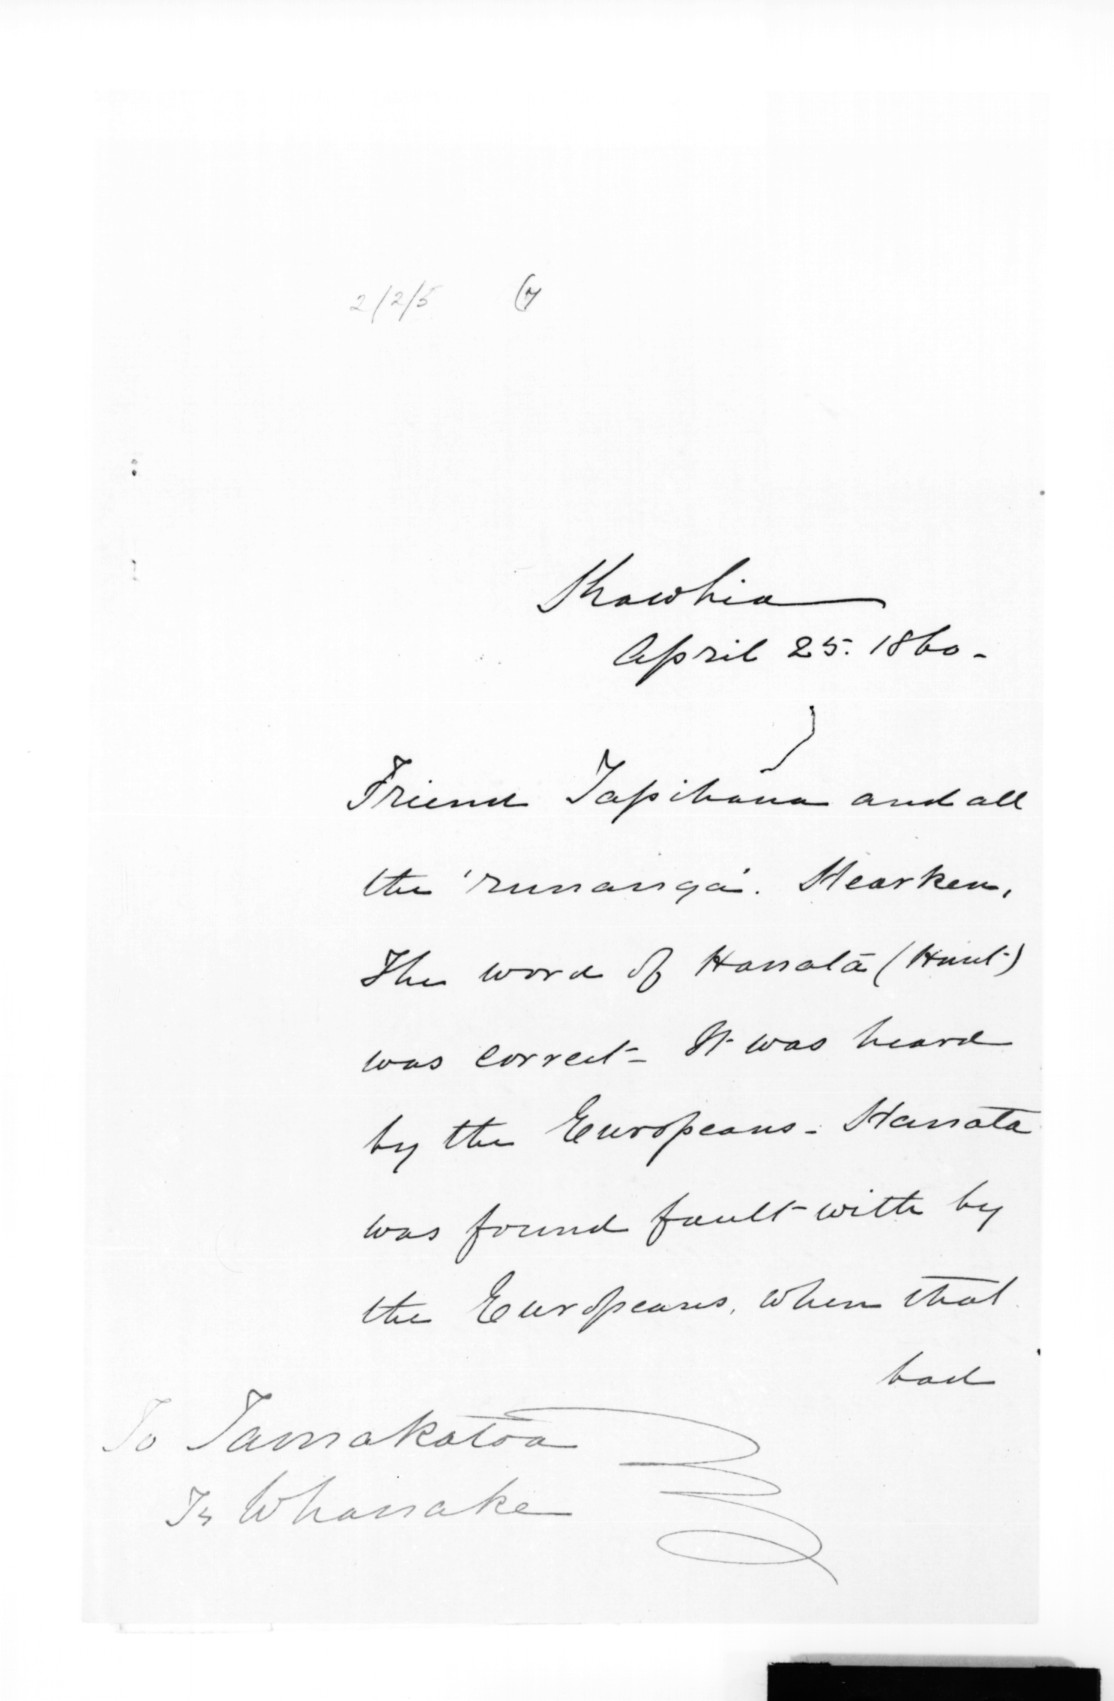 2/2/5 (7
Kawhia
April 25. 1860.
Friend Tapihana and all
the 'runanga'. Hearken,
The word of Hanata (Hunt)
was correct - It was heard
by the Europeans - Hanata
was found fault with by
the Europeans, when that
bad
To Tamakatoa
Ts Whanake